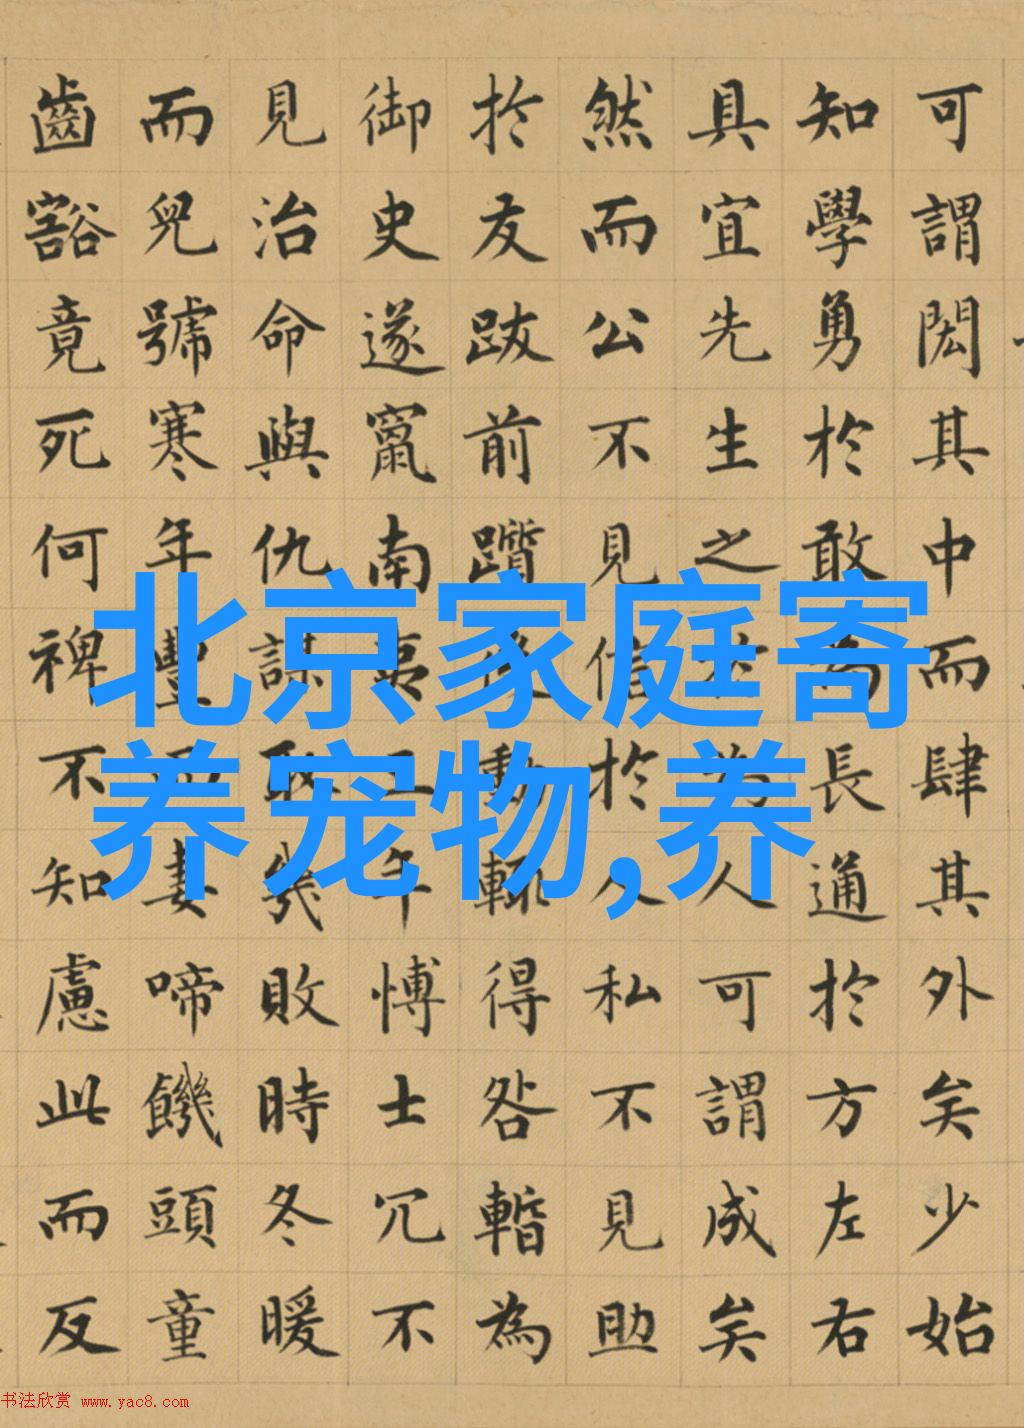 可謂閎其中而肆其外矣少始
知學勇於敢為長通於方左右
具宜先生之於為人可謂成矣
然而公不見信於人私不見助
於友跋前躓後動輒得咎暫為
御史遂竄南夷三年愽士冗不
見治命與仇謀取幾敗時冬暖
而兒號寒年豐而妻啼饑頭童
齒豁竟死何裨不知慮此而反
北京家庭寄
养宠物,养
书法欣赏 www.yac8.com